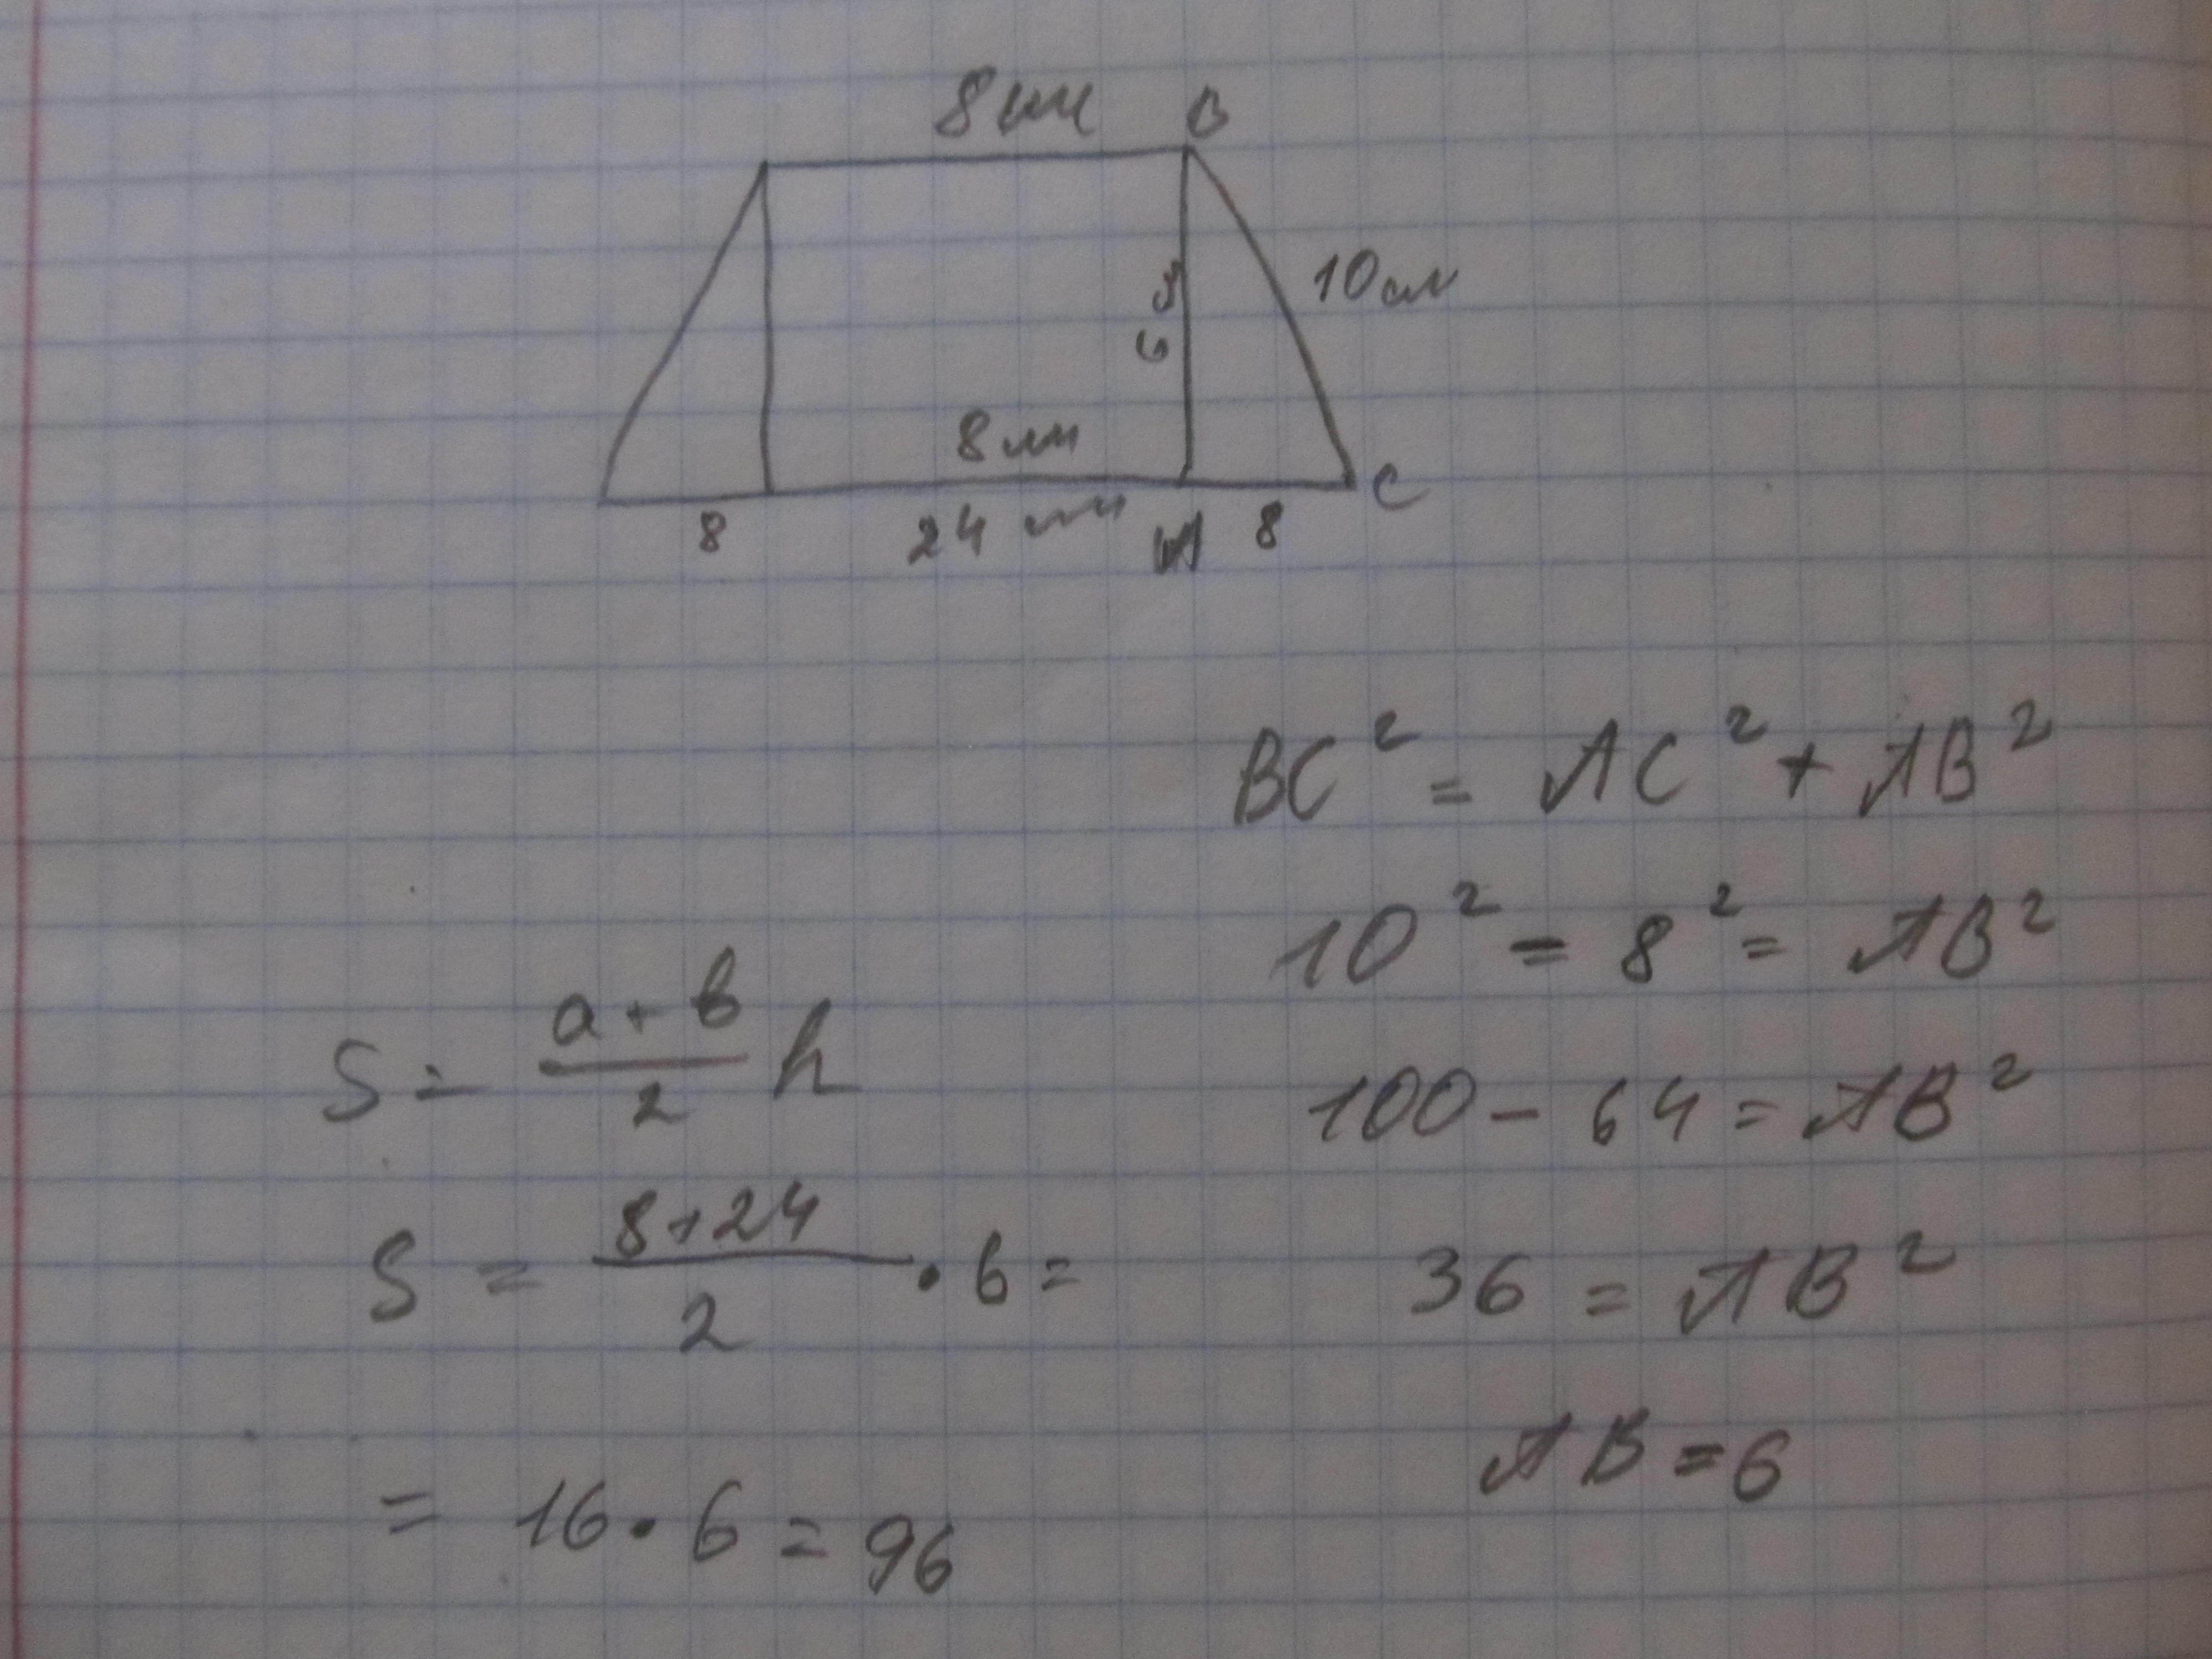 8 см B
10 см
5
6
8 см
C
8 24 см A 8
BC² = AC² + AB²
10² = 8² = AB²
100 - 64 = AB²
36 = AB²
AB = 6
S = a + b / 2 h
S = 8+24 / 2 · 6 =
= 16 · 6 = 96